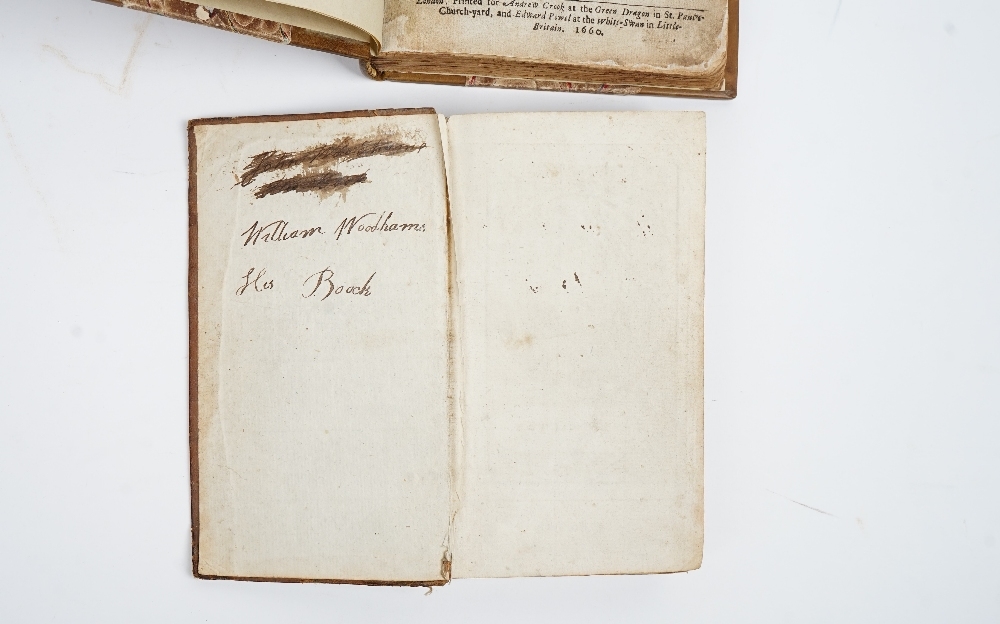 London, Printed for Andrew Crook at the Green Dragon in St. Pauls-
Church-yard, and Edward Powel at the White-Swan in Little-
Britain. 1660.
William Woodhams
His Boock